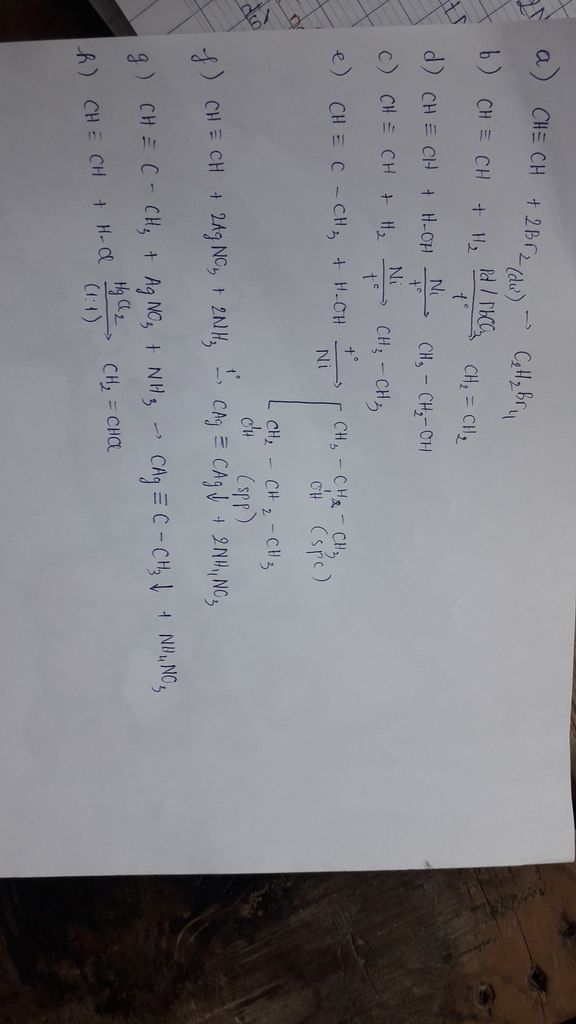 a) CH≡CH + 2Br2 (dư) → C2H2Br4
b) CH ≡ CH + H2 Pd/PbCO3 t° → CH2 = CH2
d) CH ≡ CH + H-OH Ni t° → CH3 - CH2 - OH
c) CH ≡ CH + H2 Ni t° → CH3 - CH3
e) CH ≡ C - CH3 + H-OH t° Ni → [ CH3 - CH2 - CH3
OH (spc)
CH2 - CH2 - CH3
OH (spp)
f) CH ≡ CH + 2AgNO3 + 2NH3 t° → CAg ≡ CAg↓ + 2NH4NO3
g) CH ≡ C - CH3 + AgNO3 + NH3 → CAg ≡ C - CH3↓ + NH4NO3
h) CH ≡ CH + H-Cl HgCl2 (1:1) → CH2 = CHCl